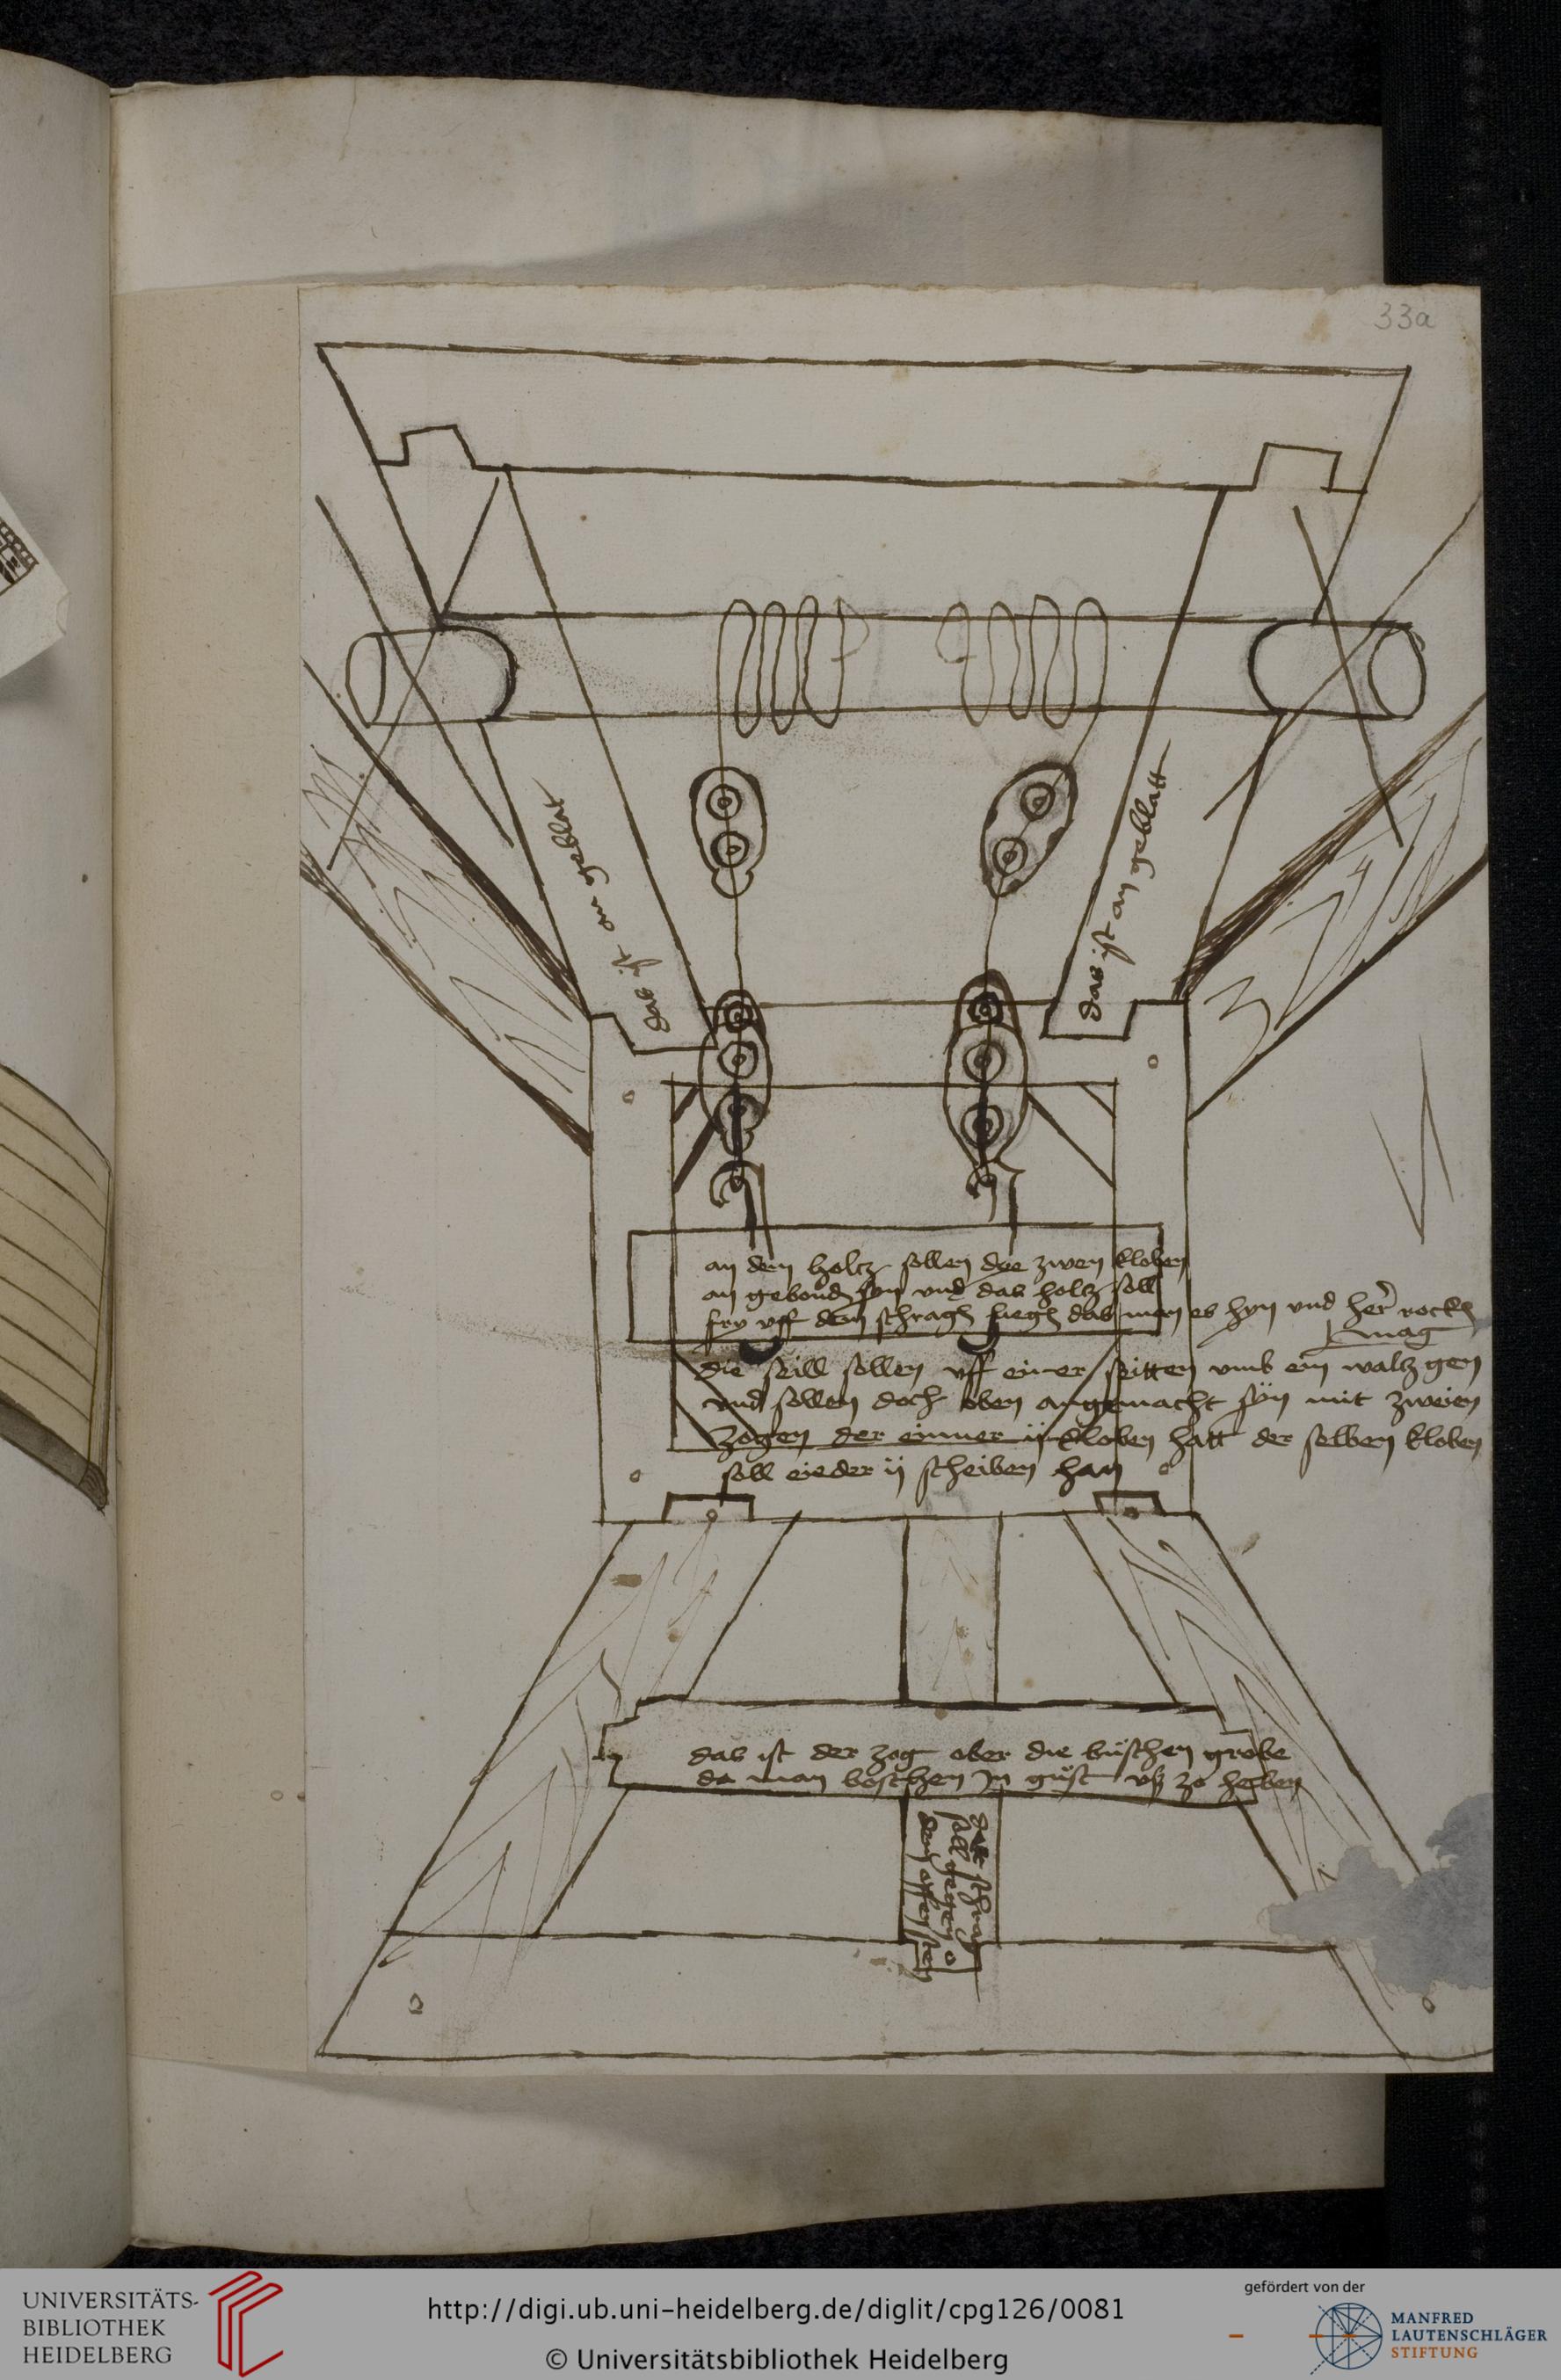 33a
das ist an geblat
das ist an geblatt
an dem holtz sollen die zwen kloben
an gebond syn vnd das holtz soll
fry vff dem schragh liegh das man es hyn vnd her rockh
mag
die seill sollen vff einer seitten vmb ein waltz gen
vnd sollen doch oben angemacht syn mit zweien
zogen der einner ij kloben hatt der selben kloben
soll eieder ij scheiben han
das ist der zog ober die buschen grobe
do man boschen jn gust vss zo heben
schrag
soll gegen
dem offen sten
UNIVERSITÄTS-
BIBLIOTHEK
HEIDELBERG
http://digi.ub.uni-heidelberg.de/diglit/cpg126/0081
© Universitätsbibliothek Heidelberg
gefördert von der
MANFRED
LAUTENSCHLÄGER
STIFTUNG